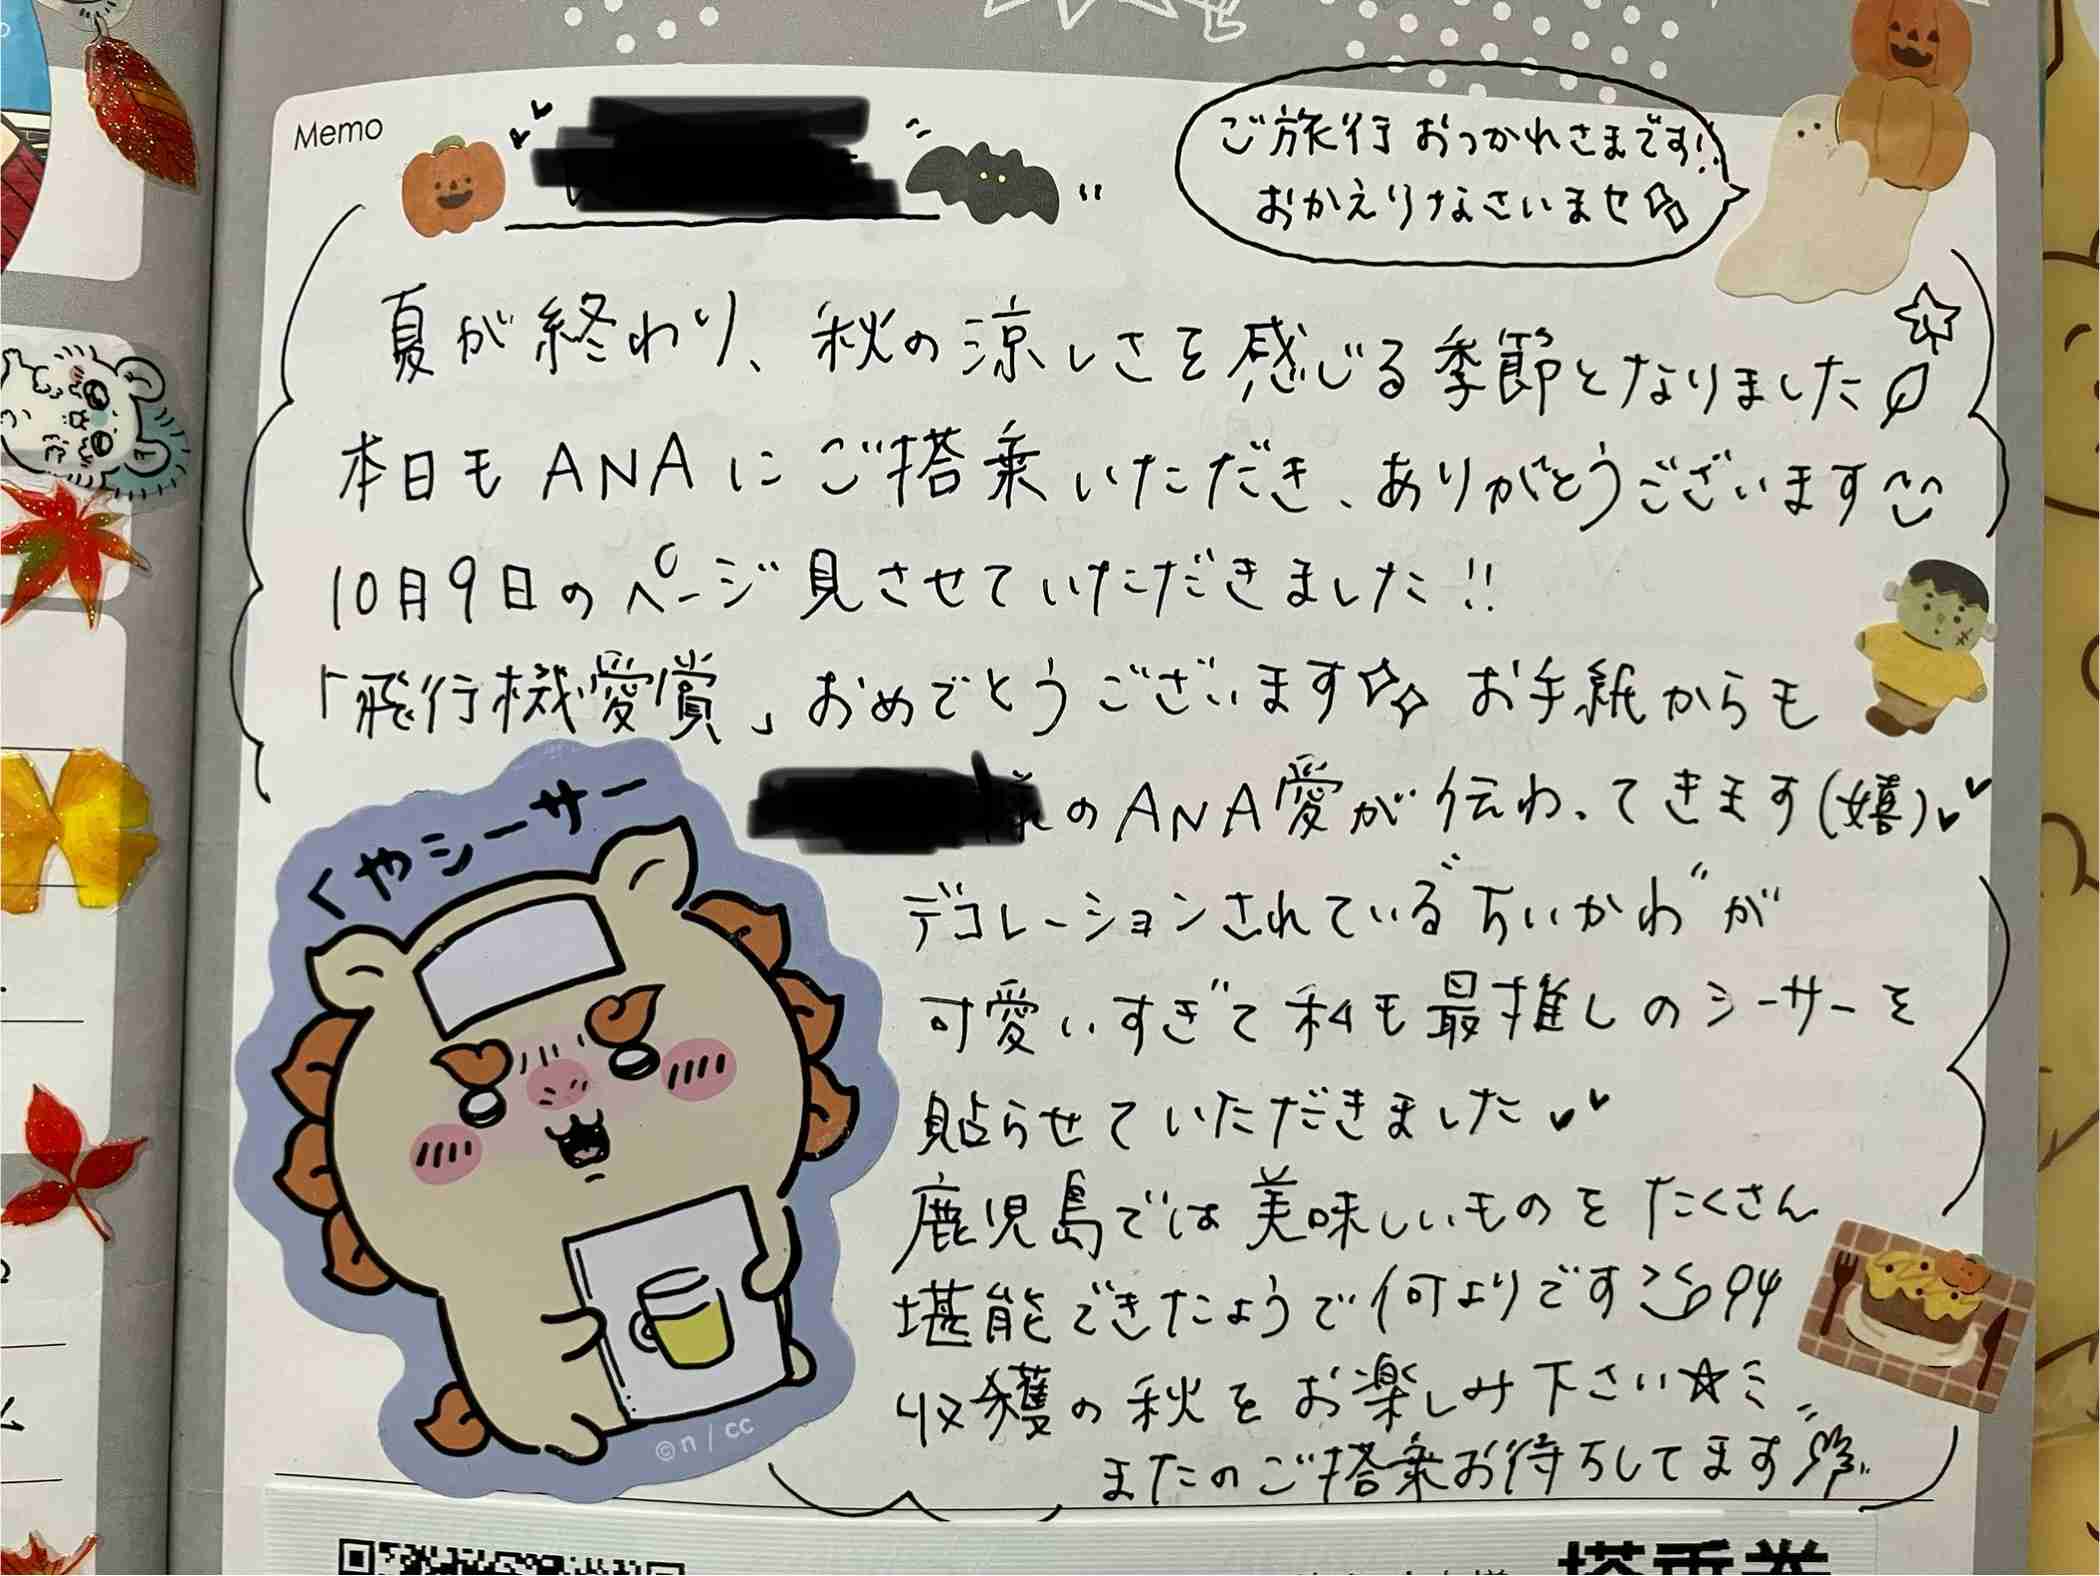 Memo
ご旅行 おつかれさまです!!
おかえりなさいませ
夏が終わり、秋の涼しさを感じる季節となりました
本日も ANA に ご搭乗 いただき、ありがとうございます
10月9日の ページ 見させていただきました!!
「飛行機愛賞」おめでとうございます お手紙からも
様の ANA愛が 伝わってきます(嬉)
デコレーションされている"ちいかわ"が
可愛いすぎて 私も 最推しの シーサーを
貼らせていただきました
鹿児島では 美味しいものを たくさん
堪能できたようで 何よりです
収穫の 秋を お楽しみ 下さい☆
またの ご搭乗お待ちしてます
くやシーサー
©n/cc
搭乗券